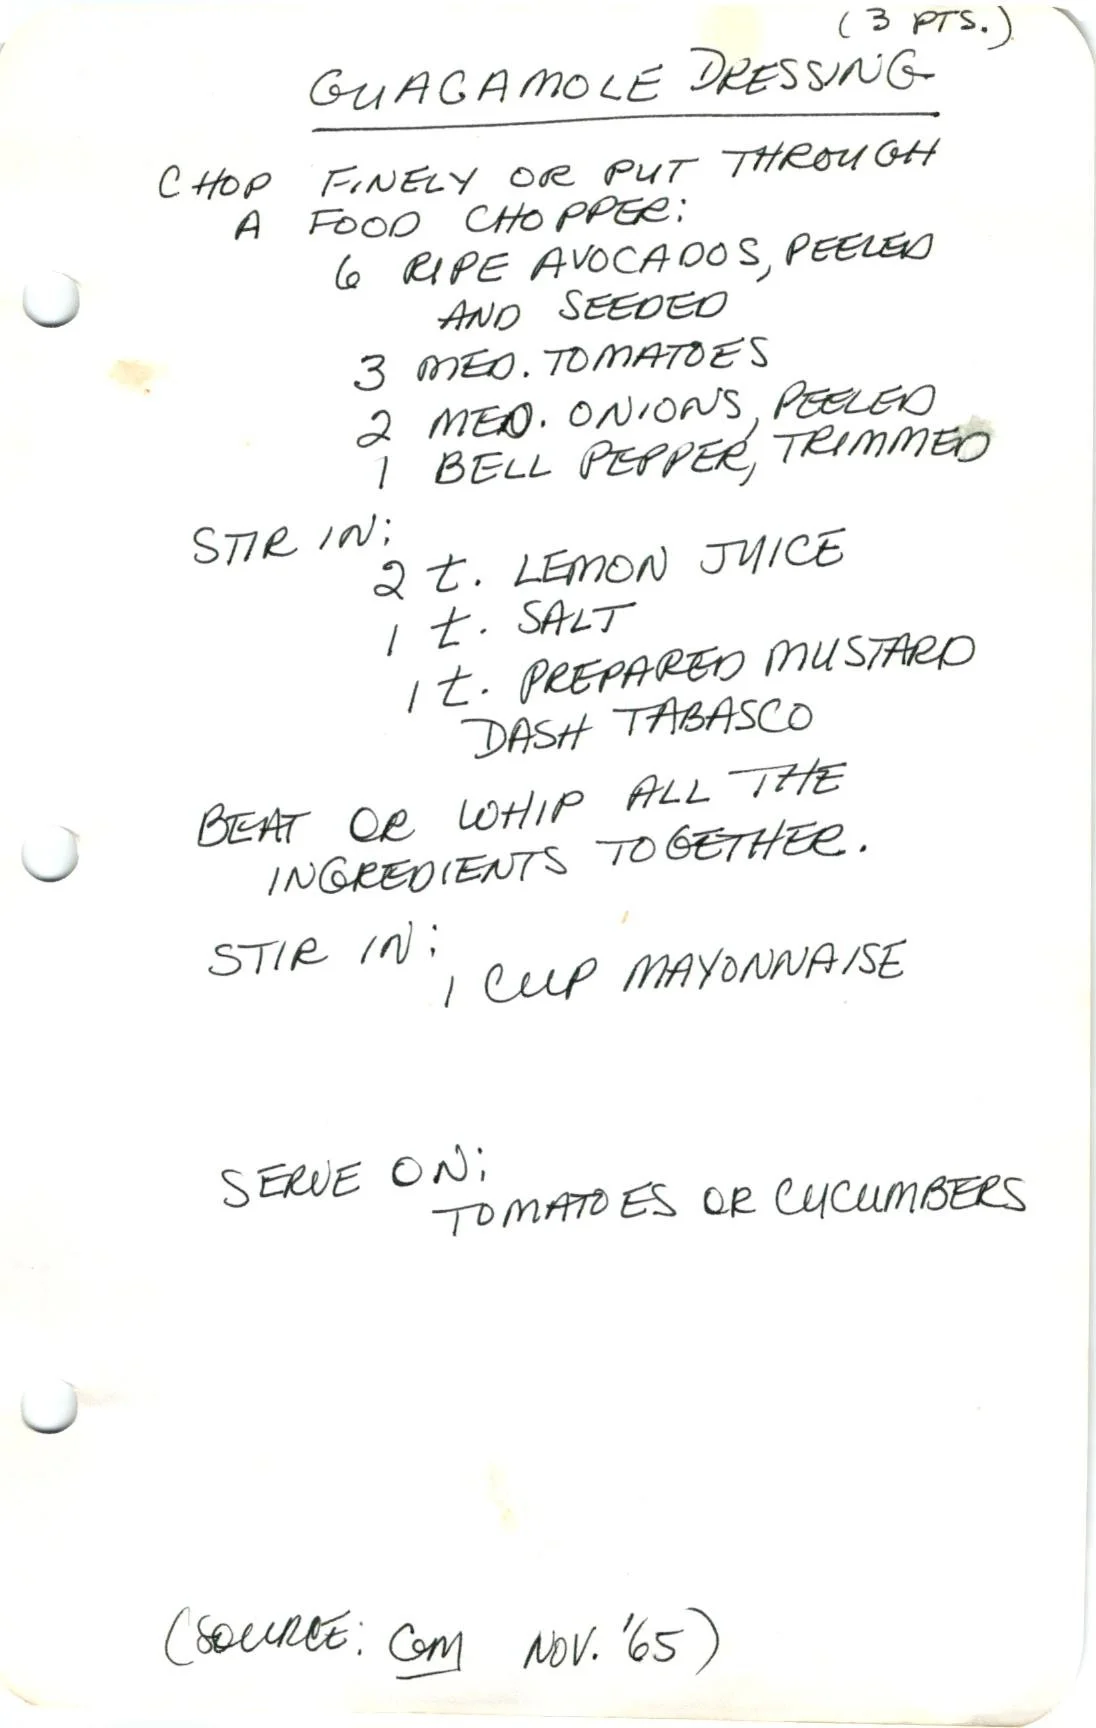 (3 PTS.)
GUACAMOLE DRESSING
CHOP FINELY OR PUT THROUGH
A FOOD CHOPPER:
6 RIPE AVOCADOS, PEELED
AND SEEDED
3 MED. TOMATOES
2 MED. ONIONS, PEELED
1 BELL PEPPER, TRIMMED
STIR IN:
2 t. LEMON JUICE
1 t. SALT
1 t. PREPARED MUSTARD
DASH TABASCO
BEAT OR WHIP ALL THE
INGREDIENTS TOGETHER.
STIR IN:
1 CUP MAYONNAISE
SERVE ON:
TOMATOES OR CUCUMBERS
(SOURCE: NOV. '65)